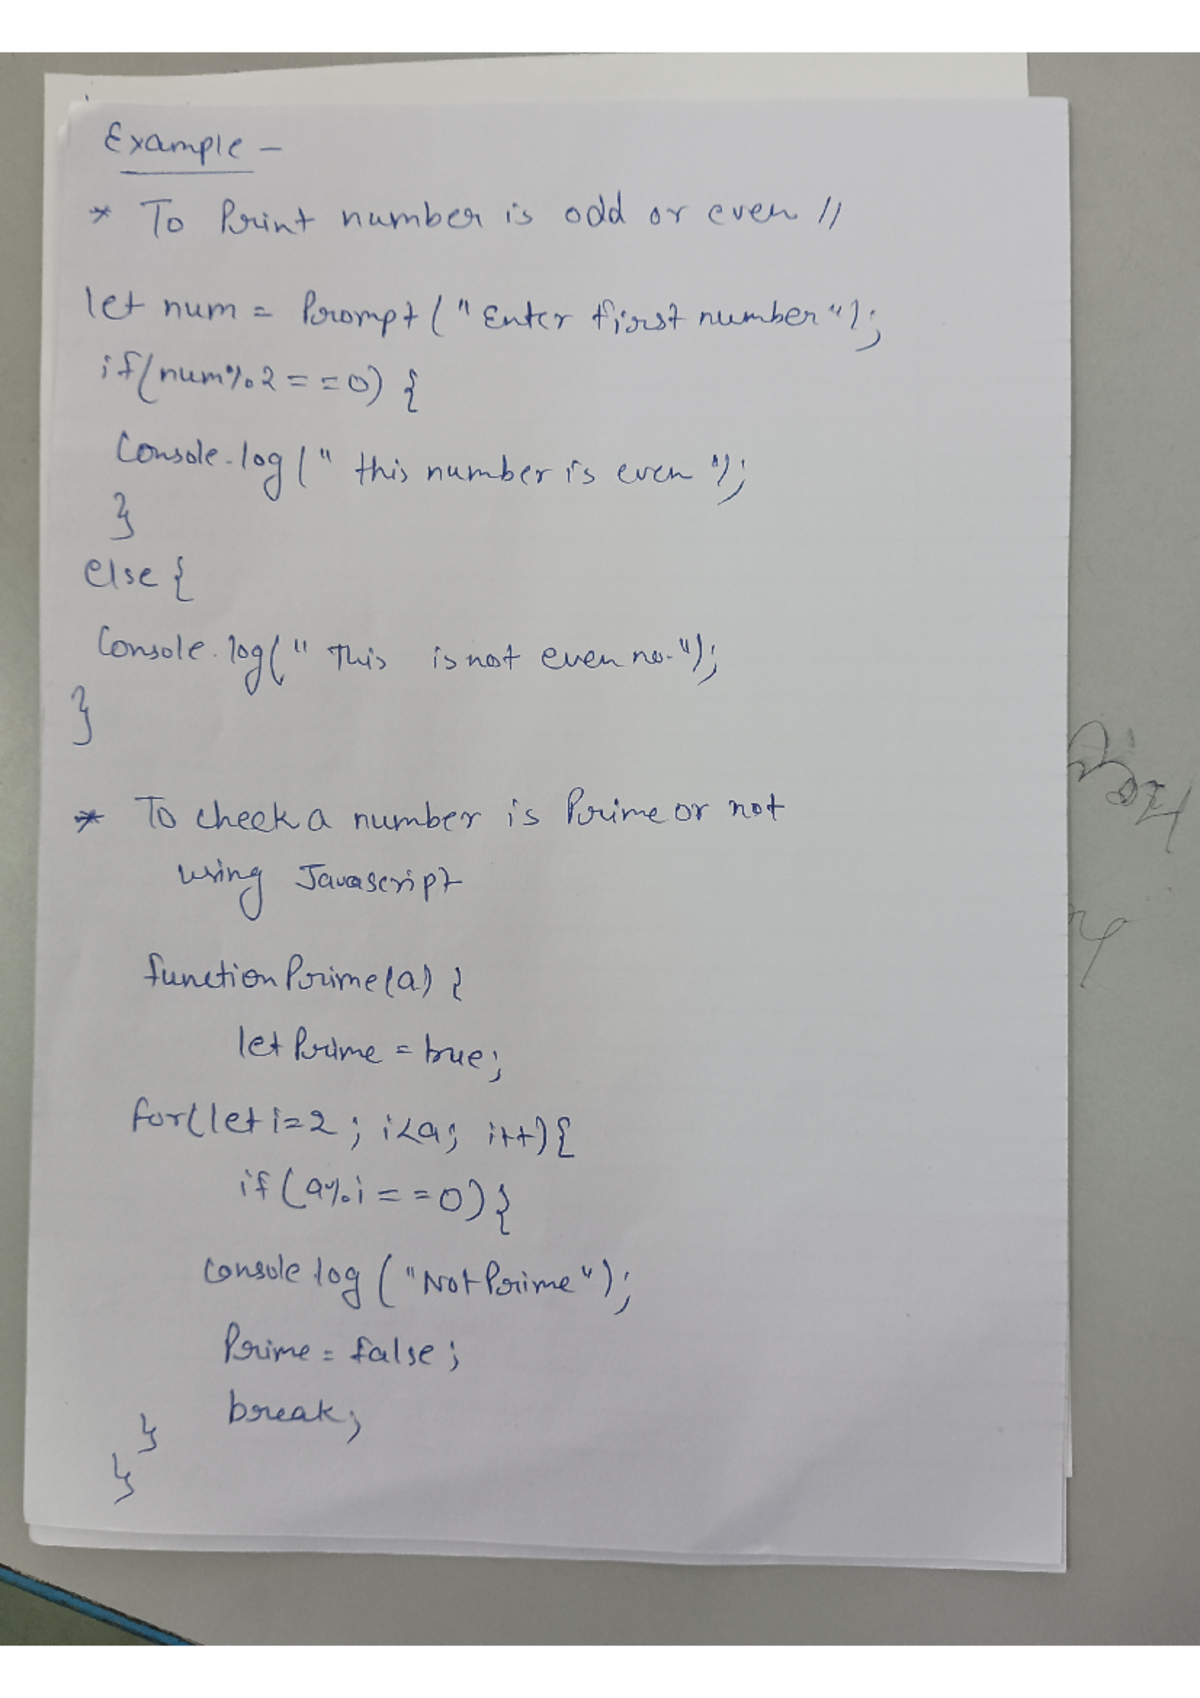 Example -
* To Print number is odd or even //
let num = Prompt ("Enter first number");
if(num%2 = =0) {
Console.log (" this number is even ");
}
else {
Console.log(" This is not even no.");
}
* To check a number is Prime or not
using Javascript
function Prime(a) {
let Prime = true;
for(let i=2 ; i<a; i++) {
if (a%i = =0) {
console log ("Not Prime");
Prime = false ;
break;
}
}